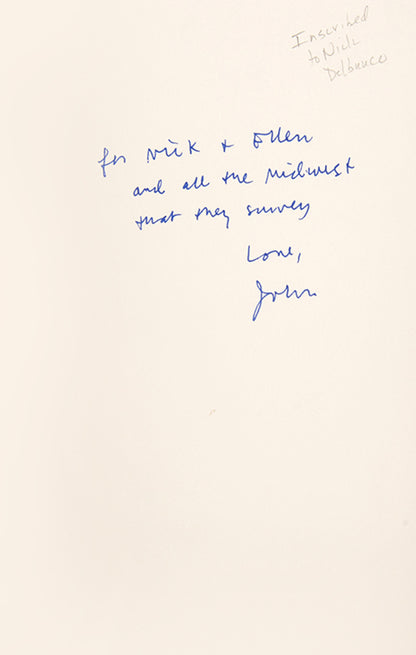 Inscribed
to Nick
Delbanco
for Nick + Ellen
and all the midwest
that they survey
Love,
John